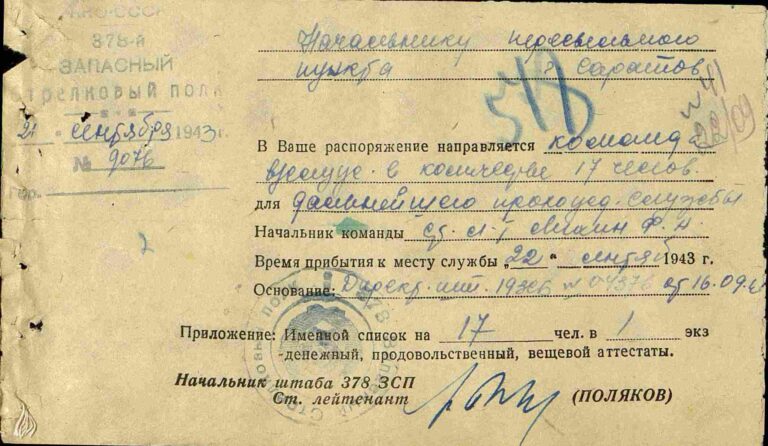 НКО-СССР
378-й
ЗАПАСНЫЙ
Стрелковый полк
21 сентября 1943 г.
№ 9076
Гор.
2
Начальнику пересыльного
пункта г Саратов
578
№ 41
22/09
В Ваше распоряжение направляется команд
в количестве 17 челов.
для дальнейшего прохожд. службы
Начальник команды Ф. А
Время прибытия к месту службы „22“ сентября 1943 г.
Основание: Директ. шт. № от 16.09.43
Приложение: Именной список на 17 чел. в 1 экз
-денежный, продовольственный, вещевой аттестаты.
Начальник штаба 378 ЗСП
Ст. лейтенант (ПОЛЯКОВ)